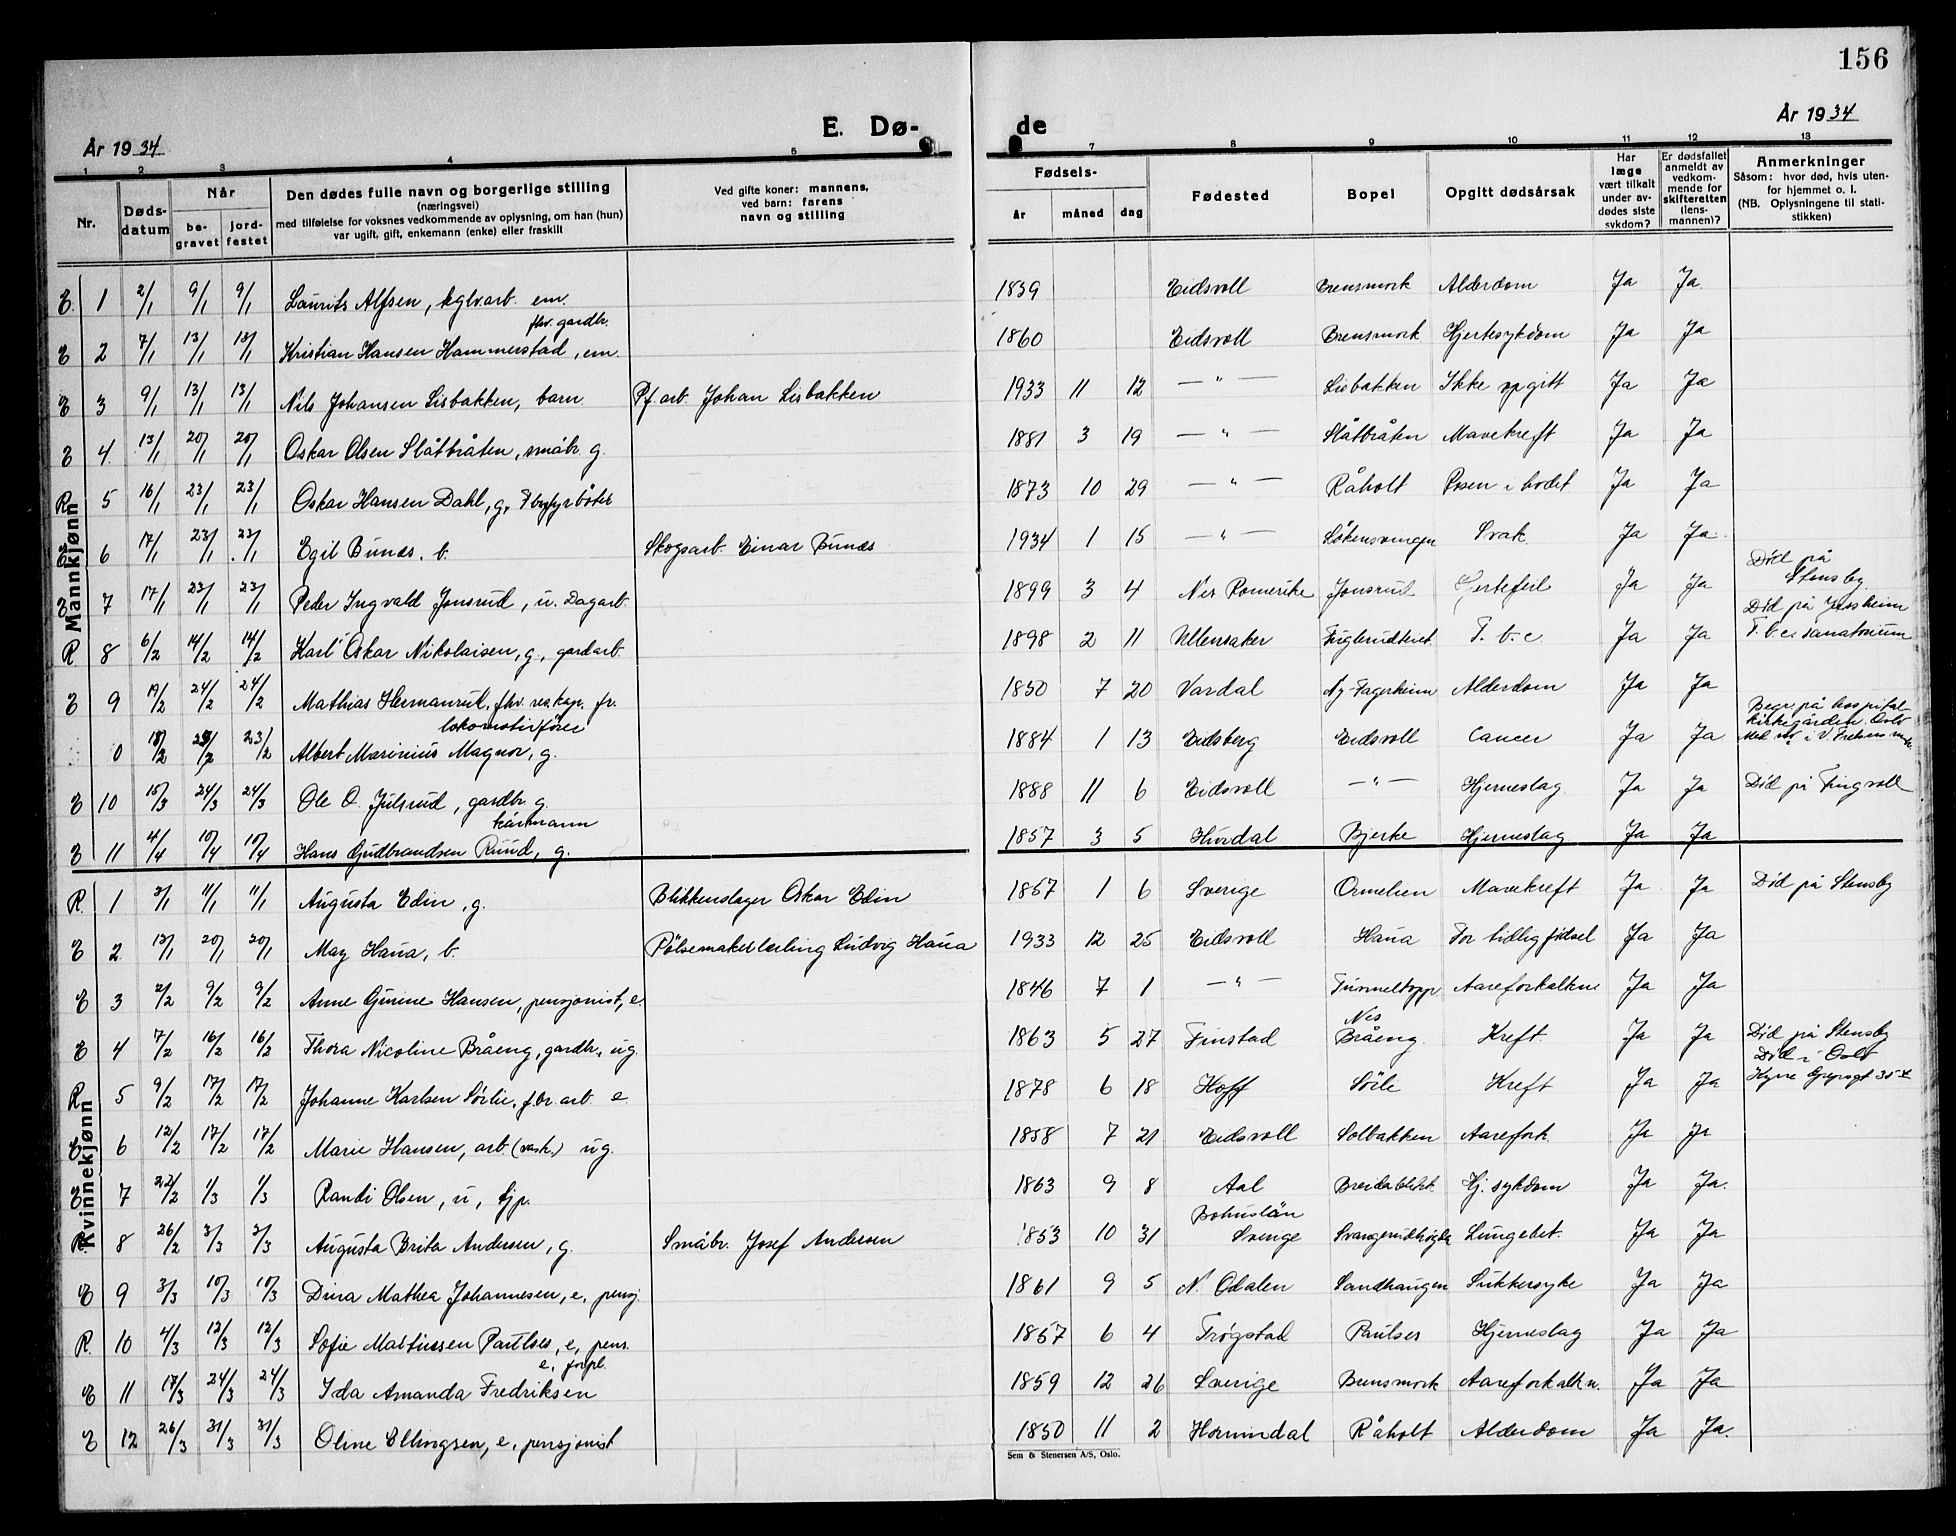 156
E. Dø- de
År 1934
År 1934
1 2 3 4 5 7 8 9 10 11 12 13
Nr.
Døds-datum
Når
be-gravet
jord-festet
Den dødes fulle navn og borgerlige stilling
(næringsvei)
med tilføielse for voksnes vedkommende av oplysning, om han (hun)
var ugift, gift, enkemann (enke) eller fraskilt
Ved gifte koner: mannens,
ved barn: farens
navn og stilling
Fødsels-
år måned dag
Fødested
Bopel
Opgitt dødsårsak
Har læge vært tilkalt under av-dødes siste sykdom?
Er dødsfallet anmeldt av vedkom-mende for skifteretten (lens-mannen)?
Anmerkninger
Såsom: hvor død, hvis uten-
for hjemmet o. l.
(NB. Oplysningene til stati-
stikken)
Mannkjønn
E. 1 2/1 9/1 9/1 Laurits Alfsen, kglvarb. em. 1839 Eidsvoll Brensmork Alderdom Ja Ja.
fhv. gardbr.
E 2 7/1 13/1 13/1 Kristian Hansen Hammerstad, em. 1860 Eidsvoll Brensmork Hjertesykdom Ja Ja
E 3 9/1 13/1 13/1 Nils Johansen Lisbakken, barn Pf. arb. Johan Lisbakken 1933 11 12 — " — Lisbakken Ikke opgitt Ja Ja
E 4. 13/1 20/1 20/1 Oskar Olsen Slåtbråten, småbr. g. 1881 3 19 — " — Slåtbråten Mavekreft Ja Ja
R 5 16/1 23/1 23/1 Oskar Hansen Dahl, g., 1873 10 29 — " — Råholt Rosen i hodet Ja Ja
E 6 17/1 23/1 23/1 Egil Bunes. b. Skogsarb. Einar Bunes 1934 1 15 — " — Svak Ja Ja.
E 7 17/1 23/1 23/1 Peder Ingvald Jonsrud, u. Dagarb. 1899 3 4 Nes Romerike Jonsrud Hjertefeil Ja Ja Død på
Stensby
R 8 6/2 14/2 14/2 Karl Oskar Nikolaisen, g., gardarb. 1898 2 11 Ullensaker T. b. c. Ja Ja Død på Jessheim
T. b. c. sanatorium
E 9 19/2 24/2 24/2 Mathias Hermanrud, fhv. res. kap. fr. 1850 7 20 Vardal Ny-Fagerheim Alderdom Ja Ja
lokomotivfører
0 18/2 23/2 23/2 Albert Marinius Magnor, g. 1884 1 13 Eidsberg Eidsvoll Cancer Ja Ja Begr. på hospital-
kirkegården. Oslo
E 10 15/3 24/3 24/3 Ole O. Julsrud, gardbr. g. 1888 11 6 Eidsvoll — " — Hjerneslag Ja Ja Død på Tingvoll
kårmann
E 11 4/4 10/4 10/4 Hans Gudbrandsen Ruud, g. 1857 3 5 Hurdal Bjerke Hjerneslag Ja Ja
Kvinnekjønn
R. 1 3/1 11/1 11/1 Augusta Edin, g. Blikkenslager Oskar Edin 1857 1 6 Sverige Ormelien Mavekreft Ja Ja Død på Stensby
E 2 13/1 20/1 20/1 May Haua, b. Pølsemakerlærling Ludvig Haua 1933 12 25 Eidsvoll Haua For tidlig fødsel Ja Ja
E 3 2/2 9/2 9/2 Anne Gurine Hansen, pensjonist, e. 1846 7 1 — " — Aareforkalkn. Ja Ja
E 4 7/2 16/2 16/2 Thora Nicoline Bråeng, gardbr., ug. 1863 5 27 Finstad Nes
Bråeng. Kreft. Ja Ja Død på Stensby
R 5 9/2 17/2 17/2 Johanne Karlsen Sørlie, e. 1878 6 18 Hoff Kreft Ja Ja Død i Oslo
E 6 12/2 17/2 17/2 Marie Hansen, arb. (vask.) ug. 1858 7 21 Eidsvoll Solbakken Aarefork. Ja Ja
E 7 22/2 1/3 1/3 Randi Olsen, u, tjp. 1863 9 8 Aal Hj. sykdom Ja Ja.
R. 8 26/2 3/3 3/3 Augusta Brita Andersen, g. Småbr. Josef Andersen 1853 10 31 Bohuslän
Sverige Lungebet. Ja Ja
E 9 3/3 10/3 10/3 Dina Mathea Johannesen, e. pensj. 1861 9 5 N. Odalen Sandhaugen Sukkersyke Ja Ja
R. 10 4/3 12/3 12/3 Sofie Martinsen Paulses, e, pens. 1857 6 4 Trøgstad Paulses Hjerneslag Ja Ja
e, forpl.
E 11 17/3 24/3 24/3 Ida Amanda Fredriksen 1859 12 26 Sverige Brensmork Aareforkalkn. Ja Ja
E 12 26/3 31/3 31/3 Oline Ellingsen, e. pensjonist 1850 11 2 Hornindal Råholt Alderdom Ja Ja.
Sem & Stenersen A/S, Oslo.